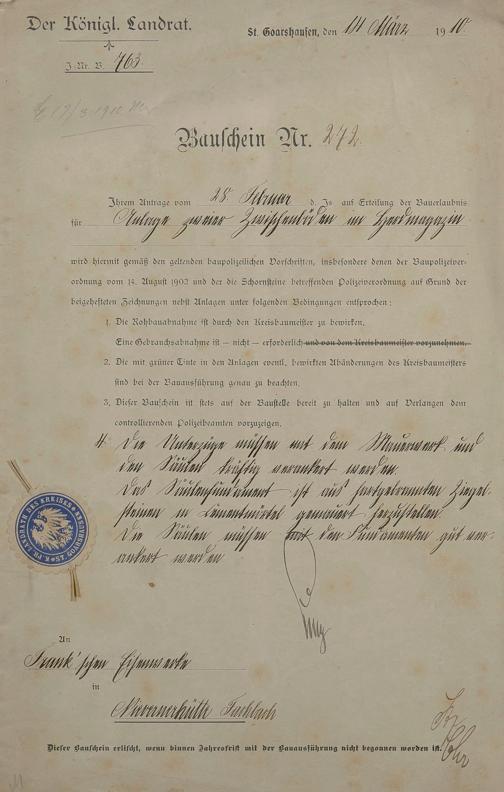 Der Königl. Landrat.
St. Goarshausen, den 14 März 1910.
J.-Nr. B. 763.
17/3 1910
Bauschein Nr. 242.
Ihrem Antrage vom 28. Februar d. Js. auf Erteilung der Bauerlaubnis
für Anlage zweier Zwischenböden im Herdmagazin
wird hiermit gemäß den geltenden baupolizeilichen Vorschriften, insbesondere denen der Baupolizeiver-
ordnung vom 14. August 1903 und der die Schornsteine betreffenden Polizeiverordnung auf Grund der
beigehefteten Zeichnungen nebst Anlagen unter folgenden Bedingungen entsprochen:
1. Die Rohbauabnahme ist durch den Kreisbaumeister zu bewirken.
Eine Gebrauchsabnahme ist — nicht — erforderlich und von dem Kreisbaumeister vorzunehmen.
2. Die mit grüner Tinte in den Anlagen eventl. bewirkten Abänderungen des Kreisbaumeisters
sind bei der Bauausführung genau zu beachten.
3. Dieser Bauschein ist stets auf der Baustelle bereit zu halten und auf Verlangen dem
controllierenden Polizeibeamten vorzuzeigen.
4. Die Unterzüge müssen mit dem Mauerwerk und
den Säulen kräftig verankert werden.
Das Säulenfundament ist aus hartgebrannten Ziegel-
steinen in Cementmörtel gemauert herzustellen.
Die Säulen müssen mit den Fundamenten gut ver-
ankert werden
K. PR. LANDRATH DES KREISES ST. GOARSHAUSEN
An
Frank'schen Eisenwerke
in
Nievernerhütte Fachbach
Dieser Bauschein erlischt, wenn binnen Jahresfrist mit der Bauausführung nicht begonnen worden ist.